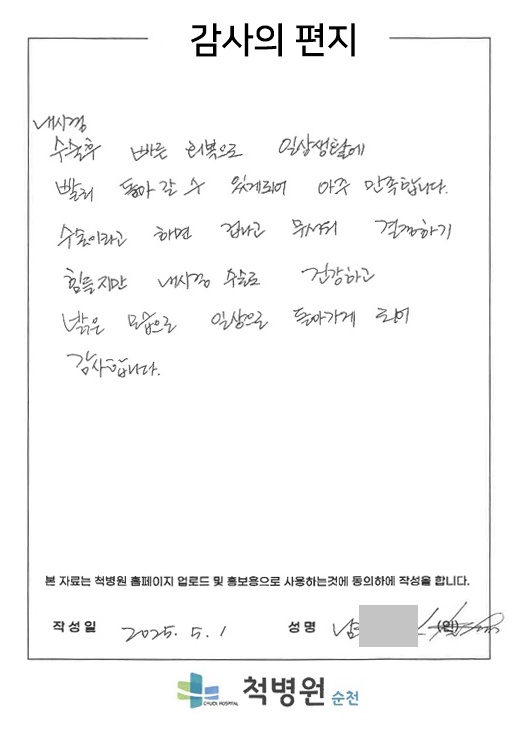 감사의 편지
내시경
수술후 빠른 회복으로 일상생활에
빨리 돌아갈 수 있게되어 아주 만족합니다.
수술이라고 하면 겁나고 무서워 결정하기
힘들지만 내시경 수술로 건강하고
밝은 모습으로 일상으로 돌아가게 되어
감사합니다.
본 자료는 척병원 홈페이지 업로드 및 홍보용으로 사용하는것에 동의하에 작성을 합니다.
작성일 2025. 5. 1 성명 남 (인)
CHUCK HOSPITAL 척병원 순천